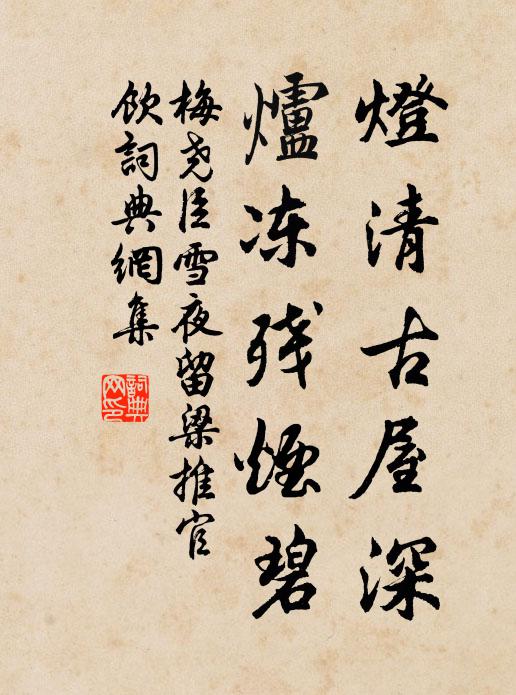 燈清古屋深
爐冻残煙碧
梅尧臣雪夜留梁推官
飲詞典網集
詞典
网印